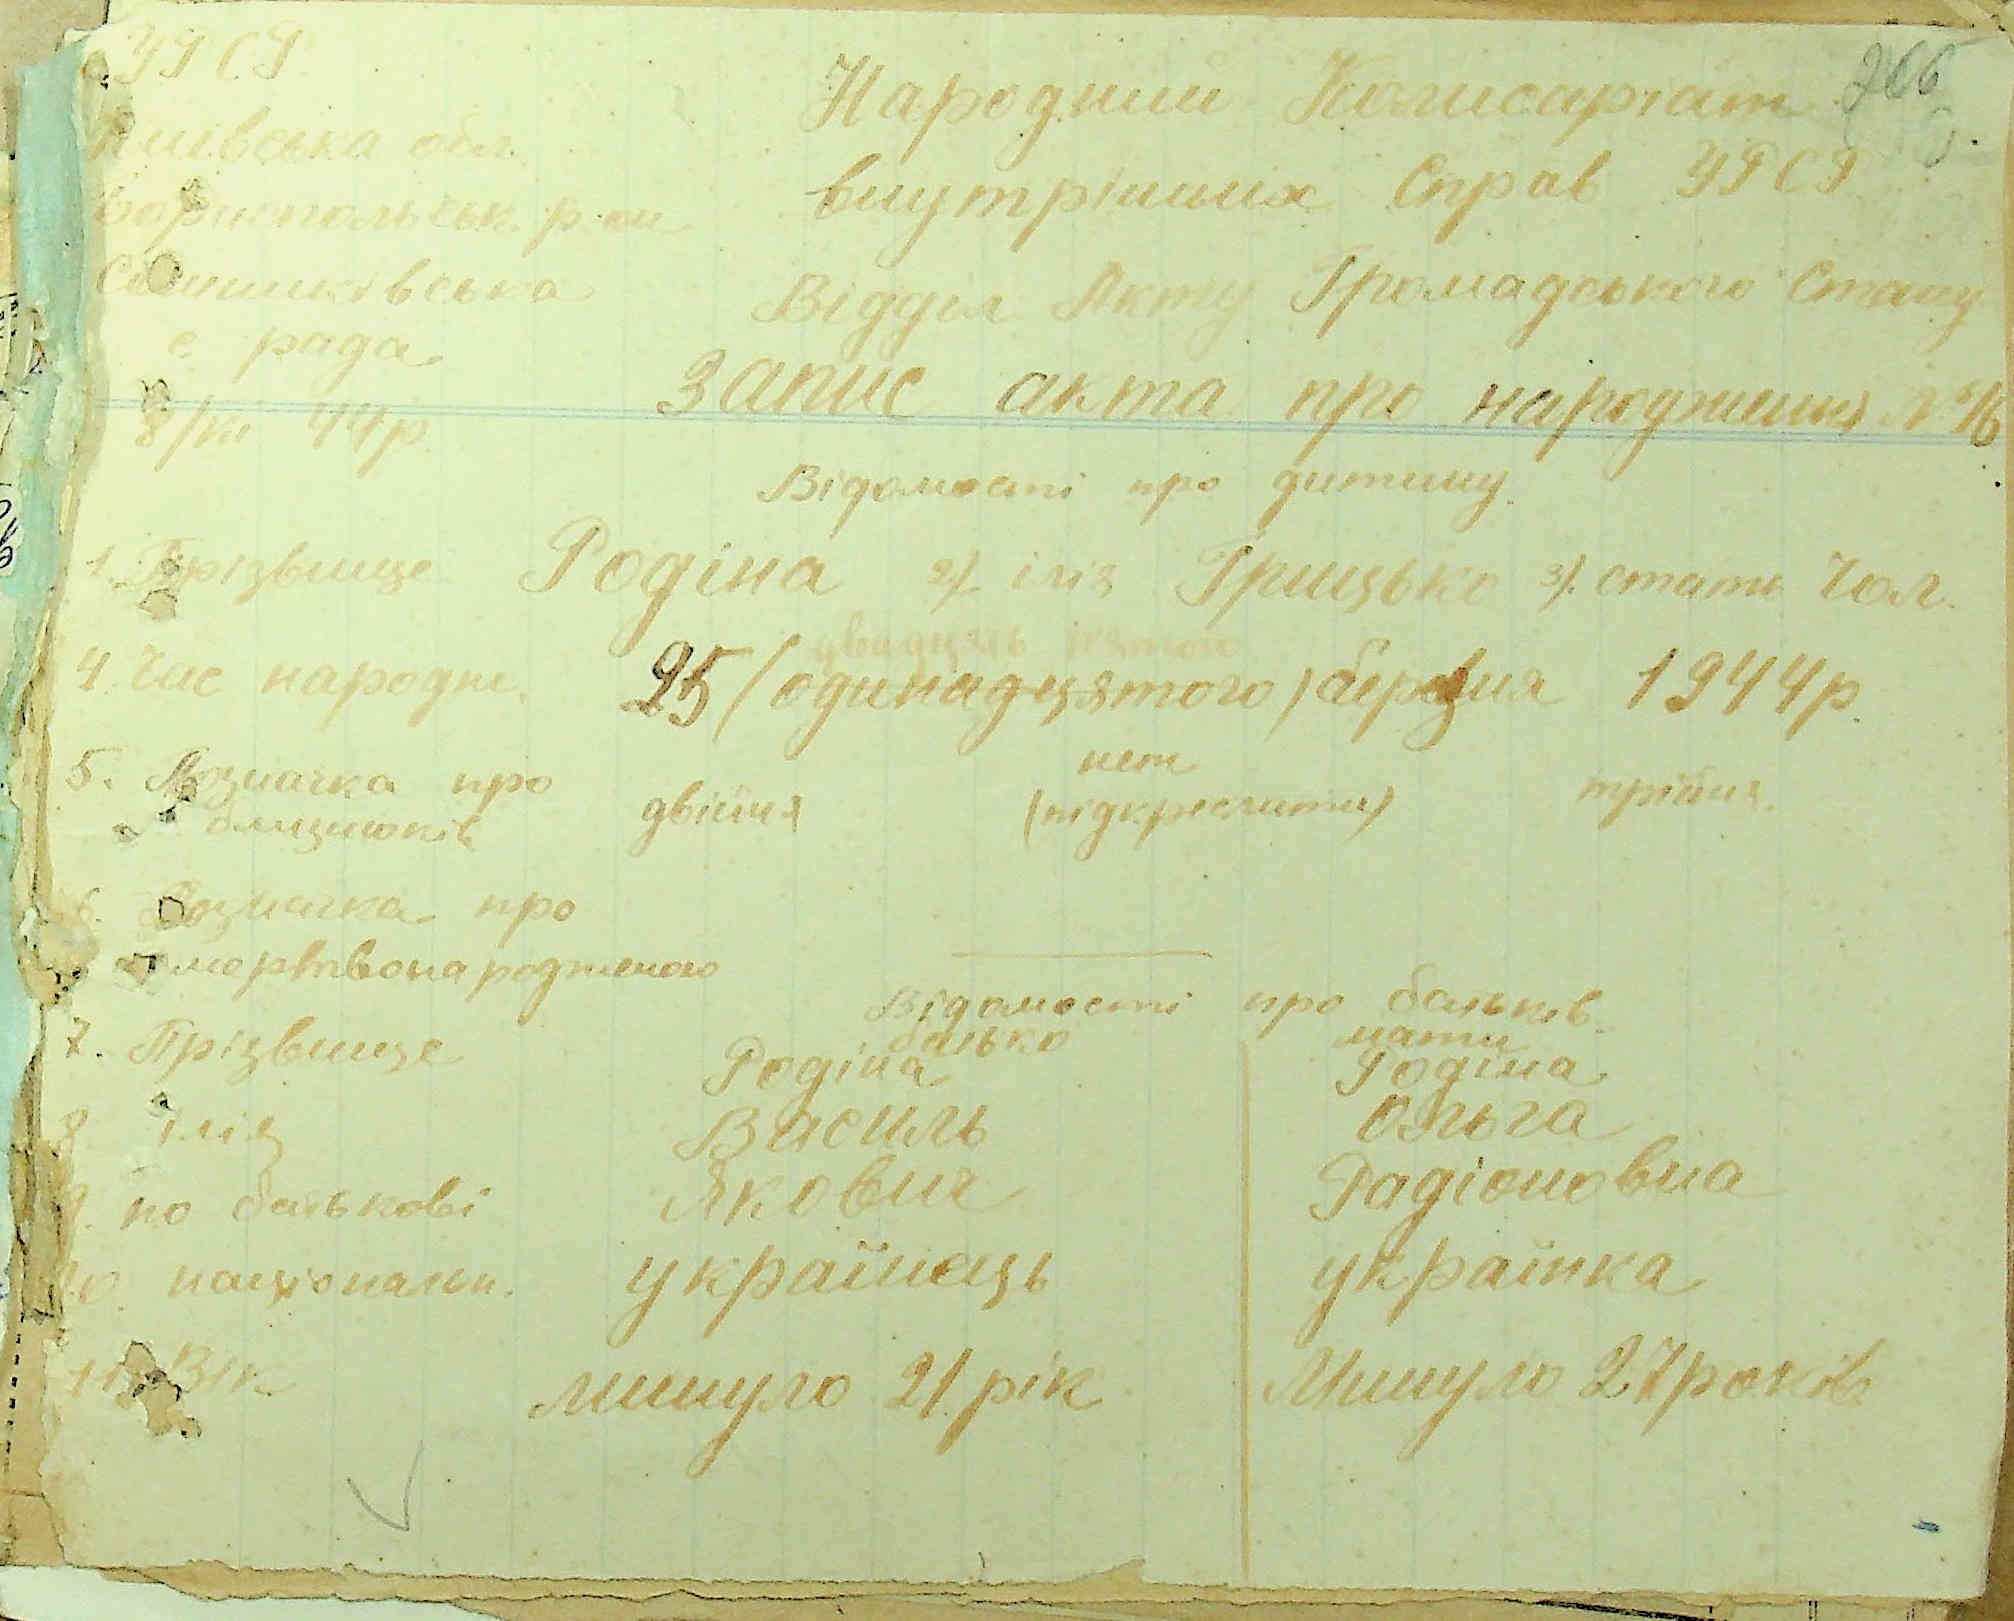 УРСР
266
Київська обл.
Народний Комісаріат
Бориспольськ. р-он
внутрішних Справ УРСР
Сошниківська
с. рада
Відділ Акту Громадського Стану
8/IV 44р.
Запис акта про народження № 16
Відомості про дитину.
1. Прізвище Родіна 2). імія Грицько 3). стать Чол.
двадцять пятого
4. Час народж. 25 (одинадцятого) березня 1944р.
5. Позначка про близнюків двійня нет (підкреслити) трійня.
6. Позначка про
мертвонародженого
Відомості про батьків.
батько мати
7. Прізвище Родіна Родіна
8. імія Василь Ольга
9. по батькові Якович Радіоновна
10. національн. українець українка
11. Вік минуло 21 рік Минуло 27 років